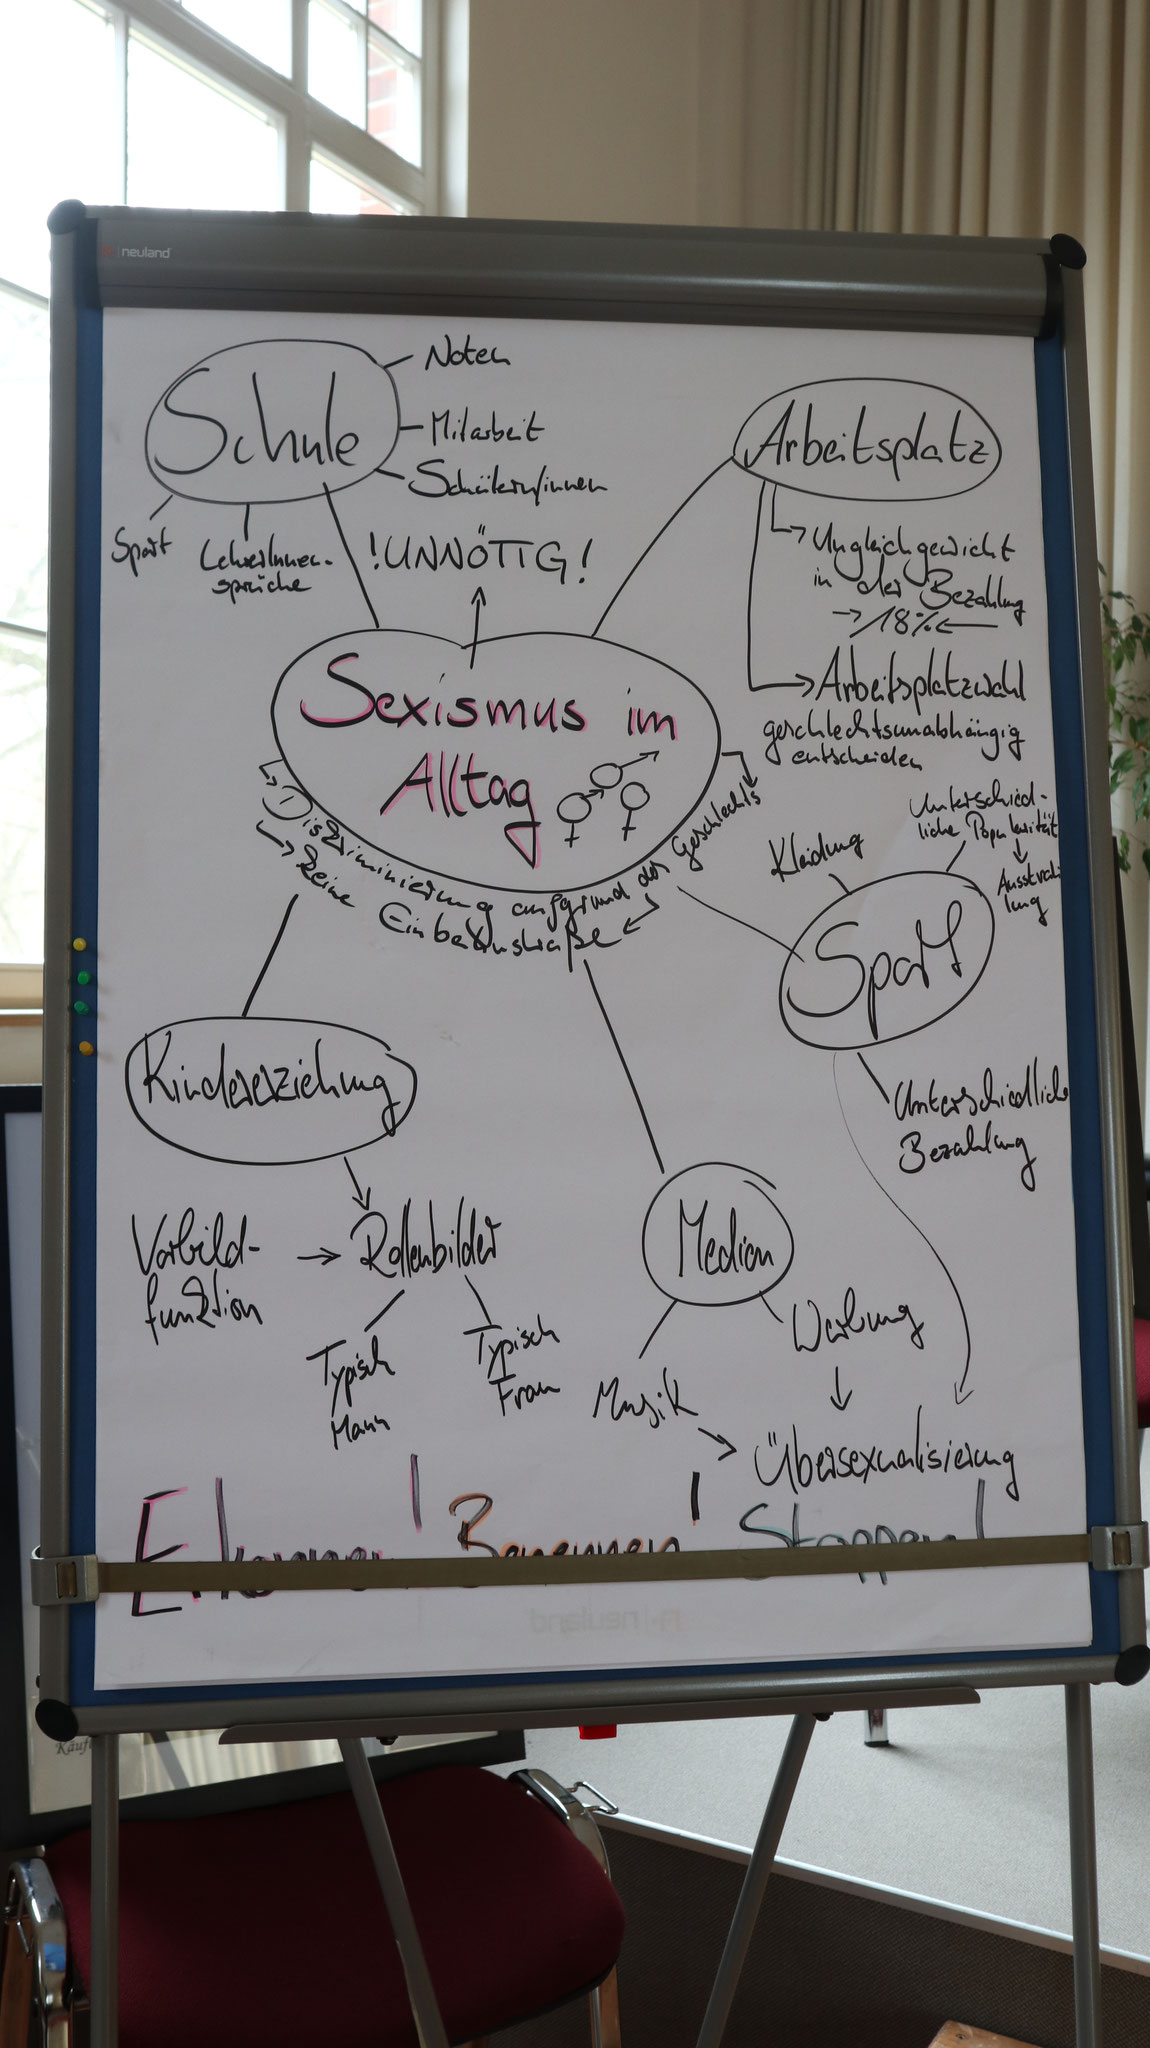 neuland
Schule
Noten
Mitarbeit
Schülern/innen
Sport
LehrerInnen-
sprüche
!UNNÖTIG!
Arbeitsplatz
Ungleichgewicht
in der Bezahlung
→18%←
Arbeitsplatzwahl
geschlechtsunabhängig
entscheiden
Sexismus im
Alltag
Diskriminierung aufgrund des Geschlechts
Keine Einbahnstraße
Kleidung
Unterschied-
liche Popularität
Ausstrah
lung
Sport
Unterschiedliche
Bezahlung
Kindererziehung
Vorbild-
funktion
Rollenbilder
Typisch
Mann
Typisch
Frau
Medien
Musik
Werbung
Übersexualisierung
Erkennen! Benennen! Stoppen!
neuland